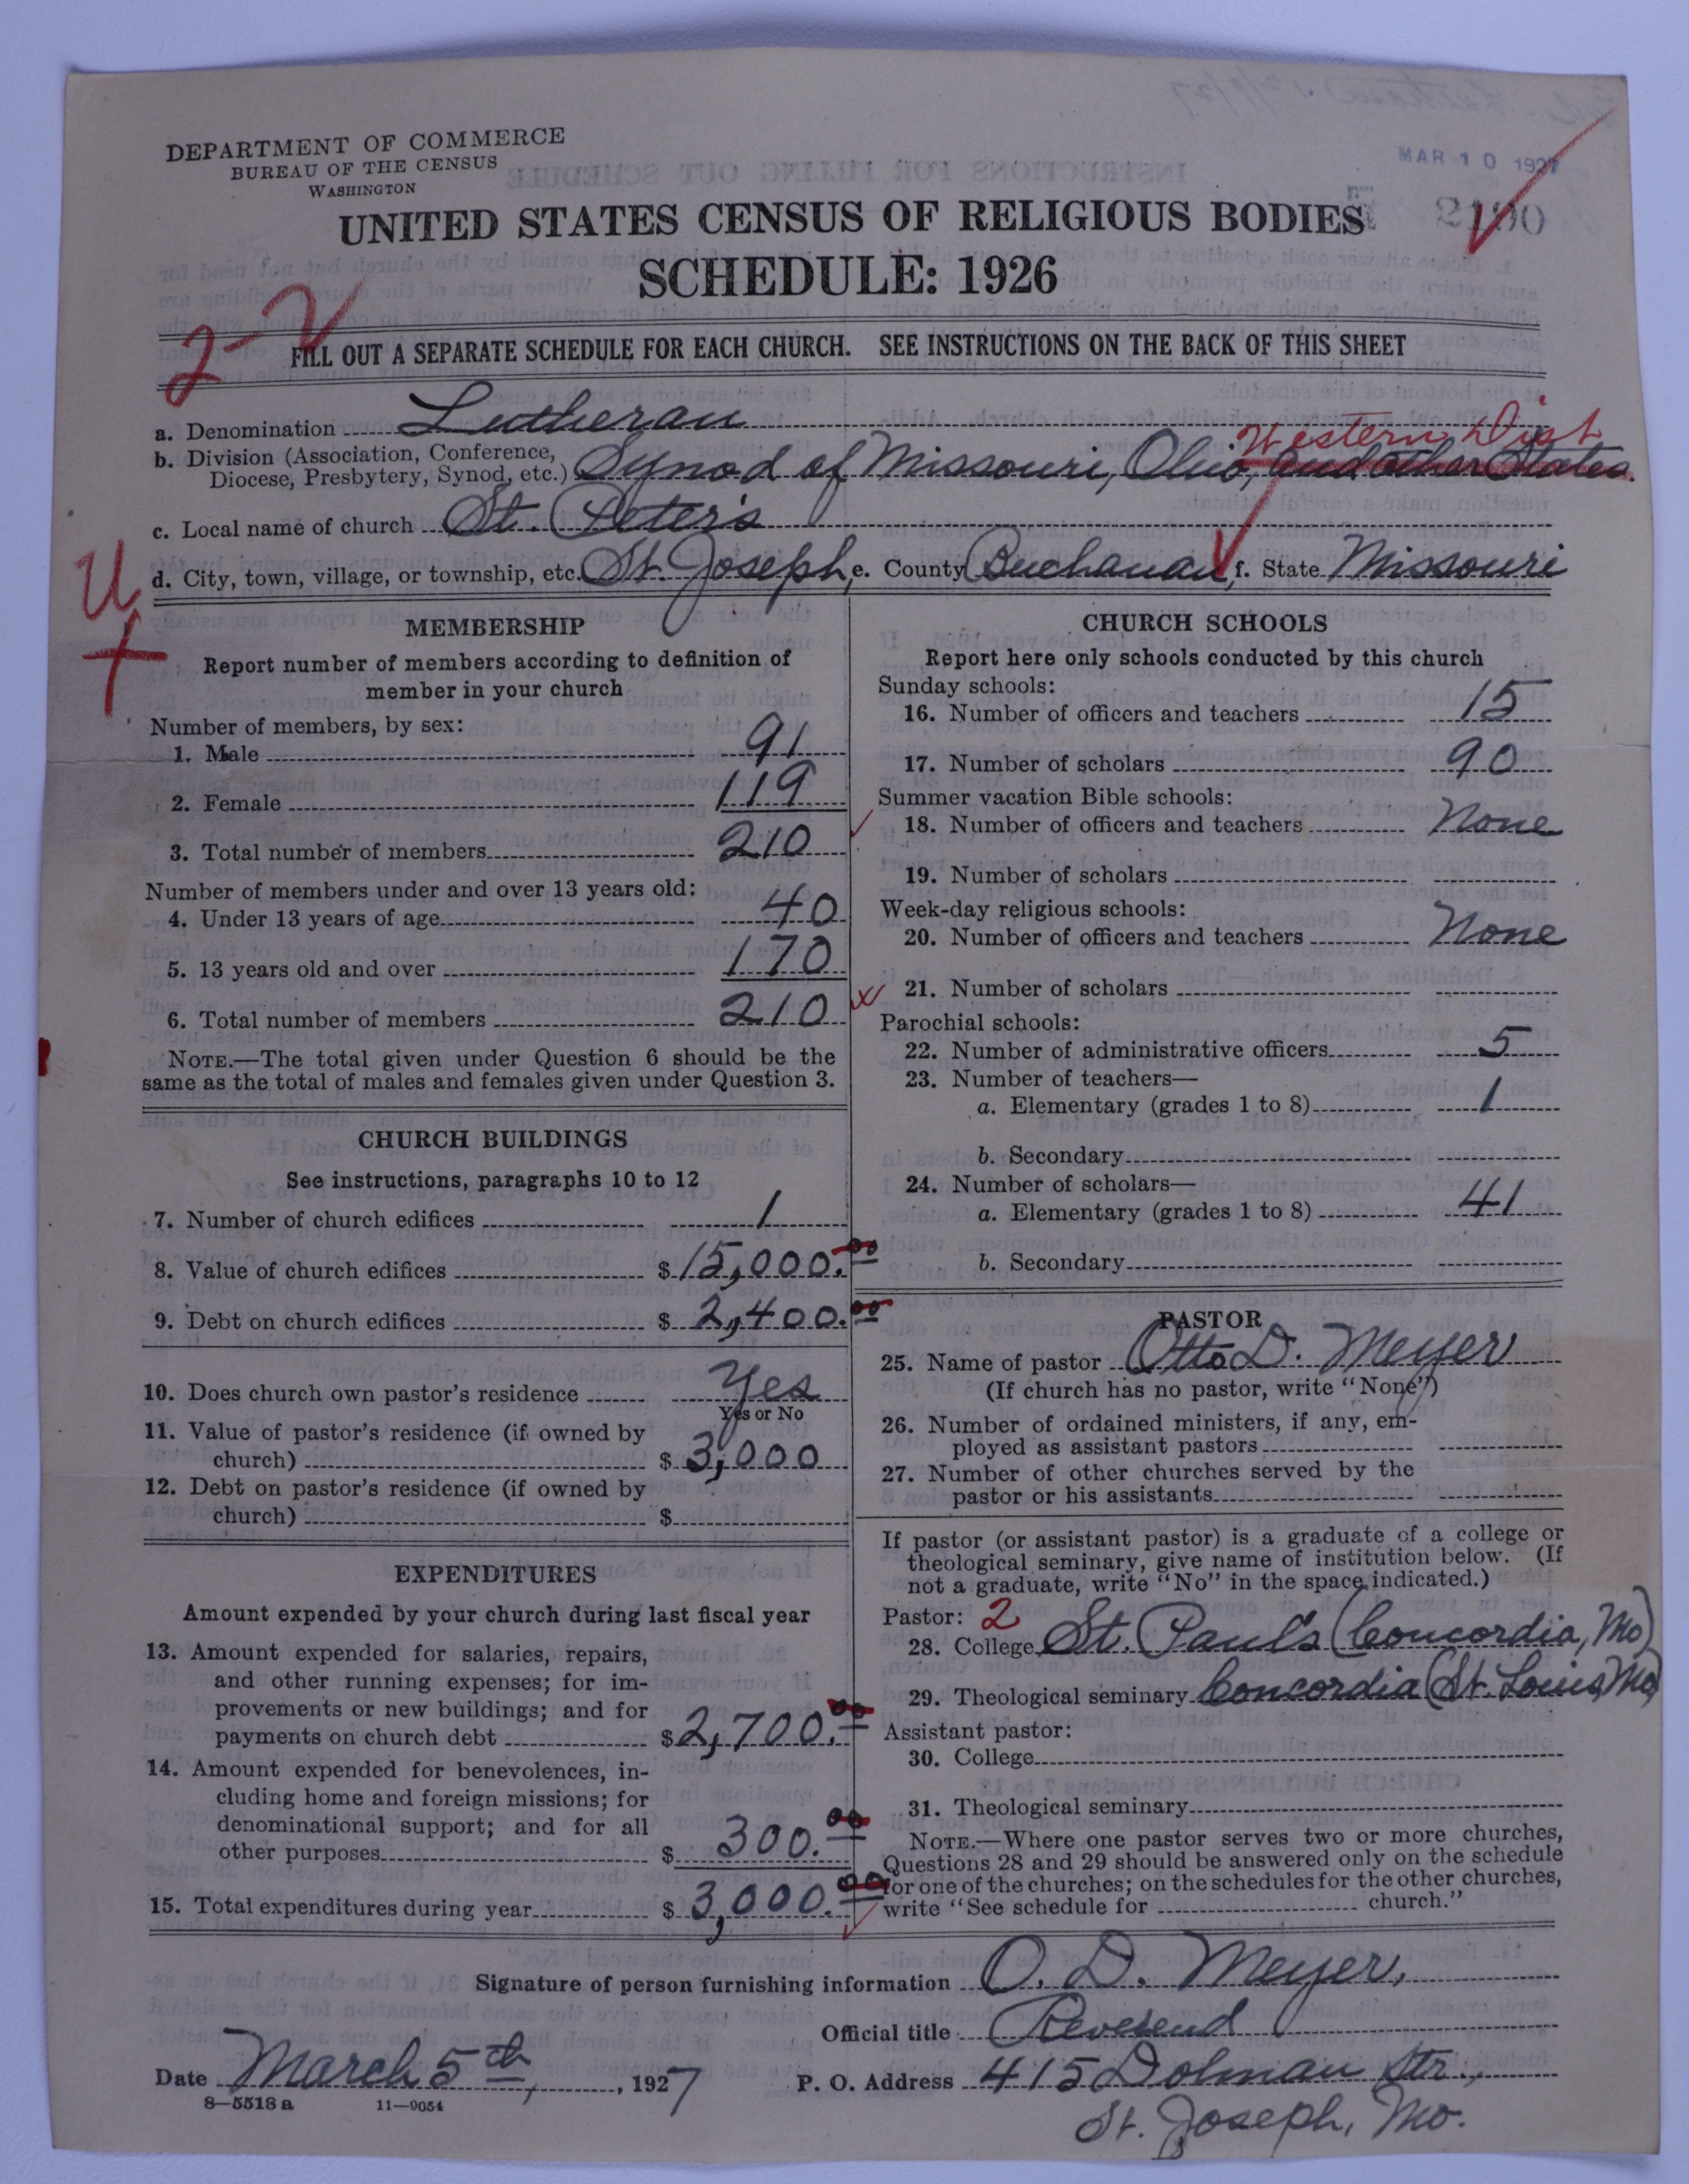 MAR 10 1927
DEPARTMENT OF COMMERCE
BUREAU OF THE CENSUS
WASHINGTON
UNITED STATES CENSUS OF RELIGIOUS BODIES
SCHEDULE: 1926
2-2
FILL OUT A SEPARATE SCHEDULE FOR EACH CHURCH. SEE INSTRUCTIONS ON THE BACK OF THIS SHEET
a. Denomination Lutheran
Western Dist
b. Division (Association, Conference, Diocese, Presbytery, Synod, etc.) Synod of Missouri, Ohio, and other States.
c. Local name of church St. Peter's
d. City, town, village, or township, etc. St. Joseph, e. County Buchanan, f. State Missouri
U
MEMBERSHIP
Report number of members according to definition of
member in your church
Number of members, by sex:
1. Male 91
2. Female 119
3. Total number of members 210
Number of members under and over 13 years old:
4. Under 13 years of age 40
5. 13 years old and over 170
6. Total number of members 210
NOTE.—The total given under Question 6 should be the
same as the total of males and females given under Question 3.
CHURCH BUILDINGS
See instructions, paragraphs 10 to 12
7. Number of church edifices 1
8. Value of church edifices $15,000.00
9. Debt on church edifices $2,400.00
10. Does church own pastor's residence Yes
Yes or No
11. Value of pastor's residence (if owned by
church) $3,000
12. Debt on pastor's residence (if owned by
church) $
EXPENDITURES
Amount expended by your church during last fiscal year
13. Amount expended for salaries, repairs,
and other running expenses; for im-
provements or new buildings; and for
payments on church debt $2,700.00
14. Amount expended for benevolences, in-
cluding home and foreign missions; for
denominational support; and for all
other purposes $300.00
15. Total expenditures during year $3,000.00
CHURCH SCHOOLS
Report here only schools conducted by this church
Sunday schools:
16. Number of officers and teachers 15
17. Number of scholars 90
Summer vacation Bible schools:
18. Number of officers and teachers None
19. Number of scholars
Week-day religious schools:
20. Number of officers and teachers None
21. Number of scholars
Parochial schools:
22. Number of administrative officers 5
23. Number of teachers—
a. Elementary (grades 1 to 8) 1
b. Secondary
24. Number of scholars—
a. Elementary (grades 1 to 8) 41
b. Secondary
PASTOR
25. Name of pastor Otto D. Meyer
(If church has no pastor, write "None")
26. Number of ordained ministers, if any, em-
ployed as assistant pastors
27. Number of other churches served by the
pastor or his assistants
If pastor (or assistant pastor) is a graduate of a college or
theological seminary, give name of institution below. (If
not a graduate, write "No" in the space indicated.)
Pastor: 2
28. College St. Paul's (Concordia, Mo)
29. Theological seminary Concordia (St. Louis, Mo)
Assistant pastor:
30. College
31. Theological seminary
NOTE.—Where one pastor serves two or more churches,
Questions 28 and 29 should be answered only on the schedule
for one of the churches; on the schedules for the other churches,
write "See schedule for church."
Signature of person furnishing information O. D. Meyer,
Official title Reverend
Date March 5th, 1927 P. O. Address 415 Dolman Str.,
8—5518 a 11—9054
St. Joseph, Mo.